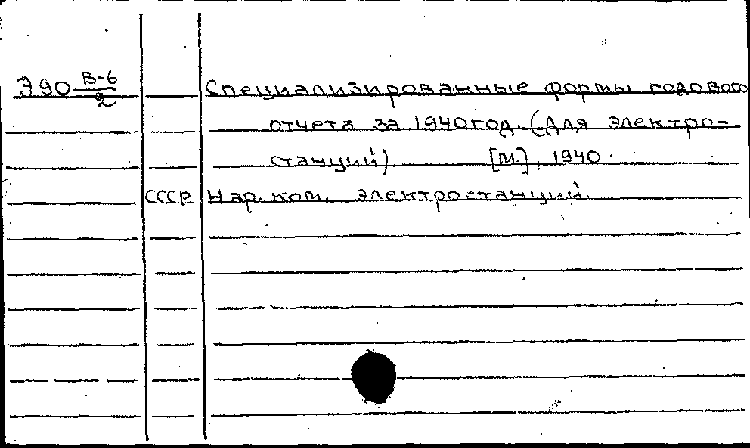 Э90 В-6/2 Специализированные формы годового
отчета за 1940 год. (Для электро-
станций) [М.], 1940.
СССР Нар. ком. электростанций.